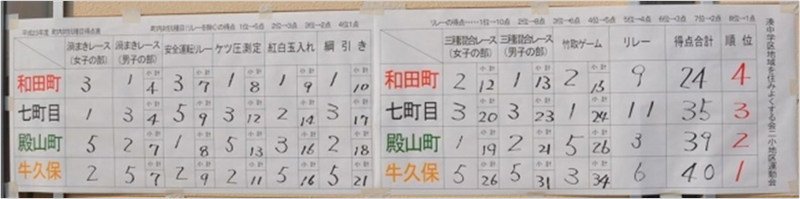 平成23年度 町内対抗種目得点表 町内対抗種目(リレーを除く)の得点 1位→5点 2位→3点 3位→2点 4位1点
渦まきレース(女子の部) 渦まきレース(男子の部) 安全運転リレー ケツ圧測定 紅白玉入れ 綱引き
小計 小計 小計 小計 小計
和田町 3 1 4 3 7 1 8 1 9 1 10
七町目 1 3 4 5 9 3 12 2 14 3 17
殿山町 5 2 7 1 8 5 13 3 16 2 18
牛久保 2 5 7 2 9 2 11 5 16 5 21
三種混合レース(女子の部) 三種混合レース(男子の部) 竹取ゲーム リレー 得点合計 順位
小計 小計 小計
和田町 2 12 1 13 2 15 9 24 4
七町目 3 20 3 23 1 24 11 35 3
殿山町 1 19 2 21 5 26 3 39 2
牛久保 5 26 5 31 3 34 6 40 1
湊中学区地域を住みよくする会二小地区運動会